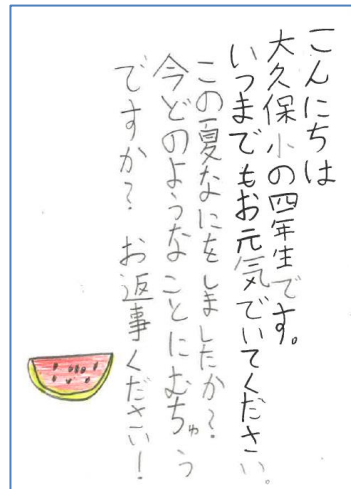 こんにちは
大久保小の四年生です。
いつまでもお元気でいてください。
この夏なにをしましたか？
今どのようなことにむちゅう
ですか？ お返事ください！